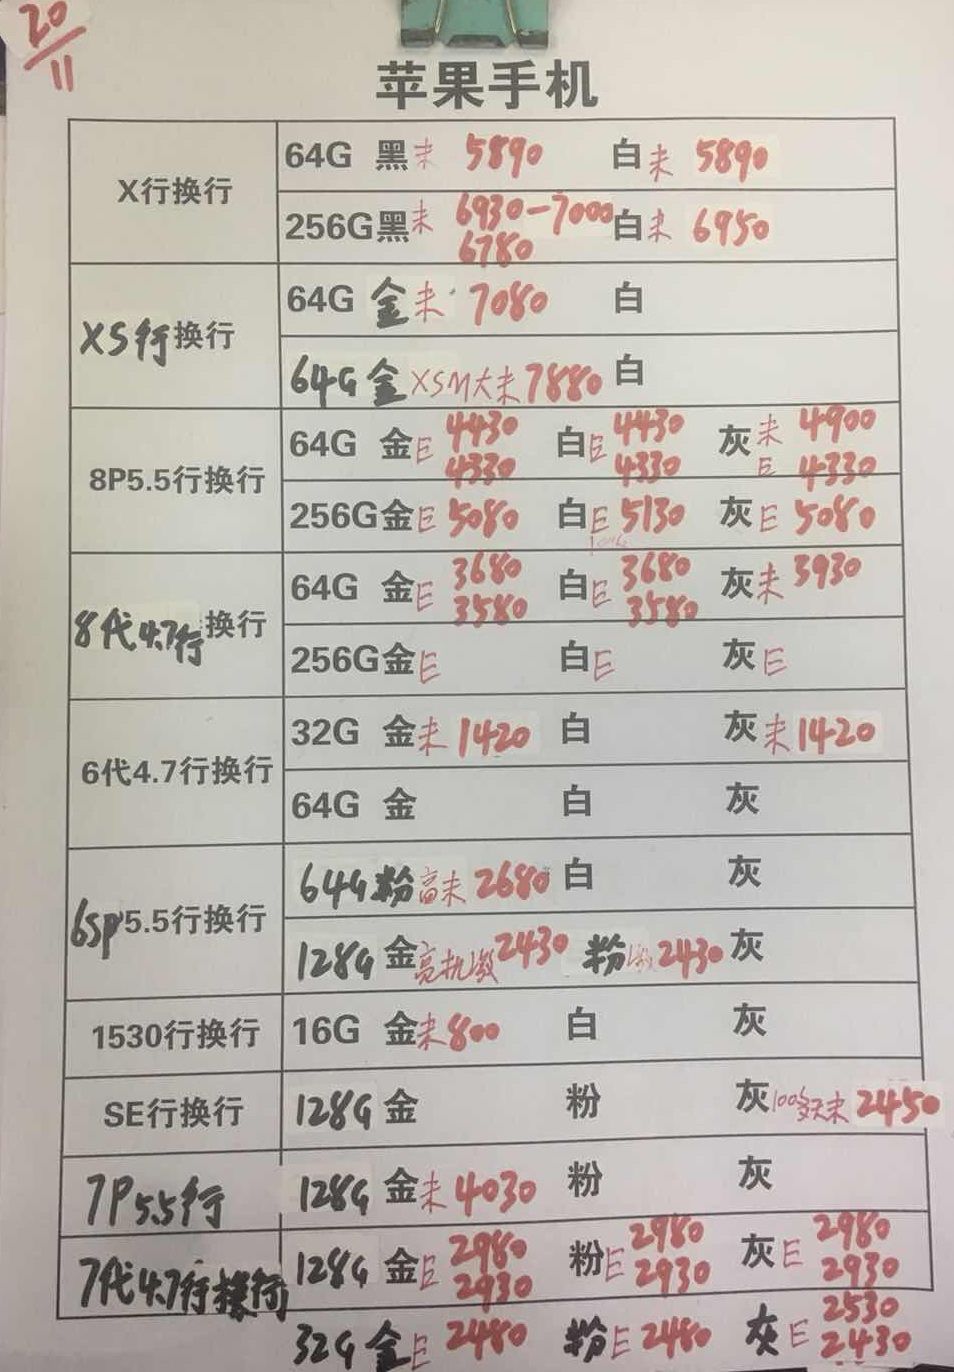 20/11
苹果手机
X行换行
64G 黑未 5890 白未 5890
256G黑未 6930-7000 6780 白未 6950
XS行换行
64G 金未 7080 白
64G 金XSM大未7880 白
8P5.5行换行
64G 金E 4430 4330 白E 4430 4330 灰未 4900 E 4330
256G金E 5080 白E 5130 灰E 5080
8代4.7行换行
64G 金E 3680 3580 白E 3680 3580 灰未 3930
256G金E 白E 灰E
6代4.7行换行
32G 金未 1420 白 灰未 1420
64G 金 白 灰
6SP5.5行换行
64G 粉高未 2680 白 灰
128G 金高机激 2430 粉激 2430 灰
1530行换行
16G 金未800 白 灰
SE行换行
128G 金 粉 灰100多天未 2450
7P5.5行
128G 金未 4030 粉 灰
7代4.7行换行
128G 金E 2980 2930 粉E 2980 2930 灰E 2980 2930
32G 金E 2480 粉E 2480 灰E 2530 2430